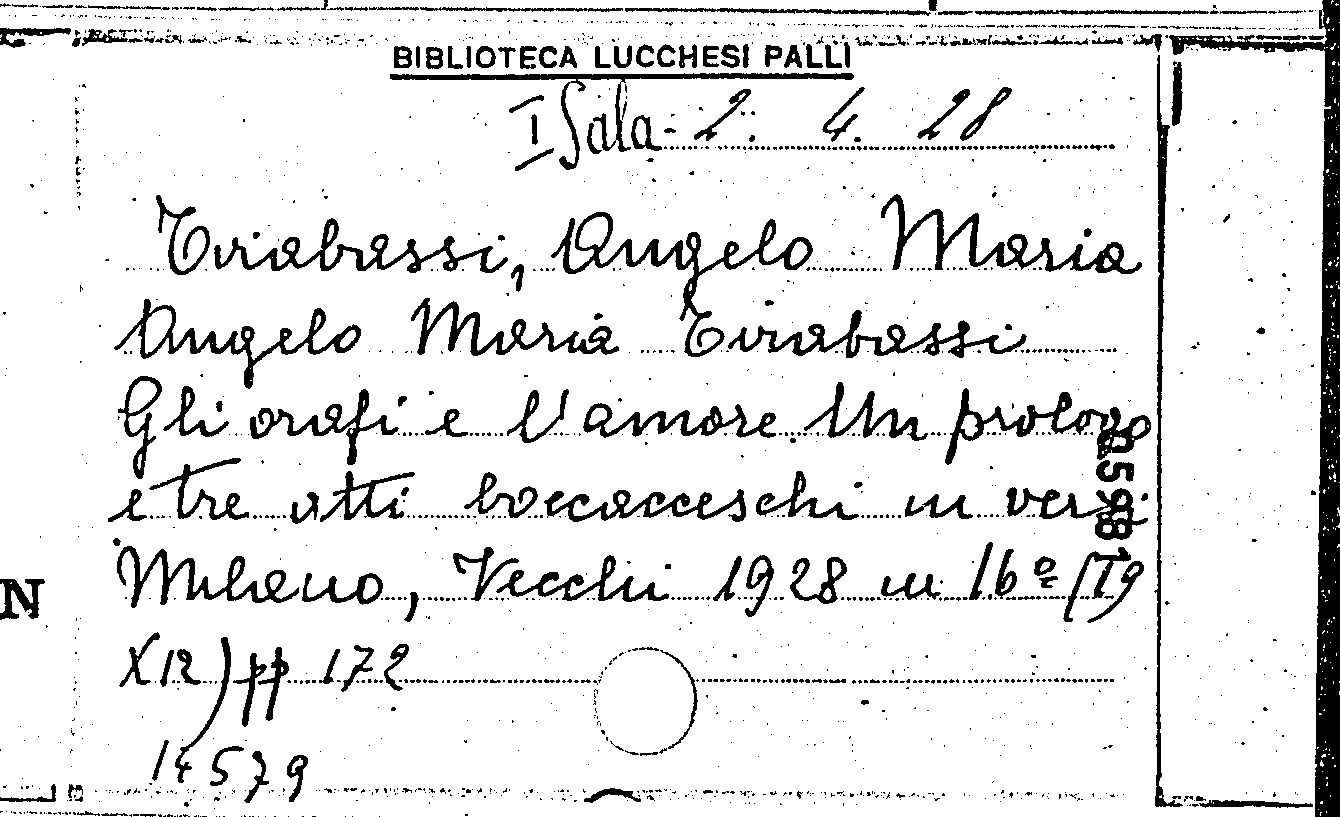 BIBLIOTECA LUCCHESI PALLI
I Sala - 2. 4. 28
Tirabassi, Angelo Maria
Angelo Maria Tirabassi
Gli orafi e l'amore. Un prologo
e tre atti boccacceschi in versi
Milano, Vecchi 1928 in 16º (19
X12) pp 172
14579
N